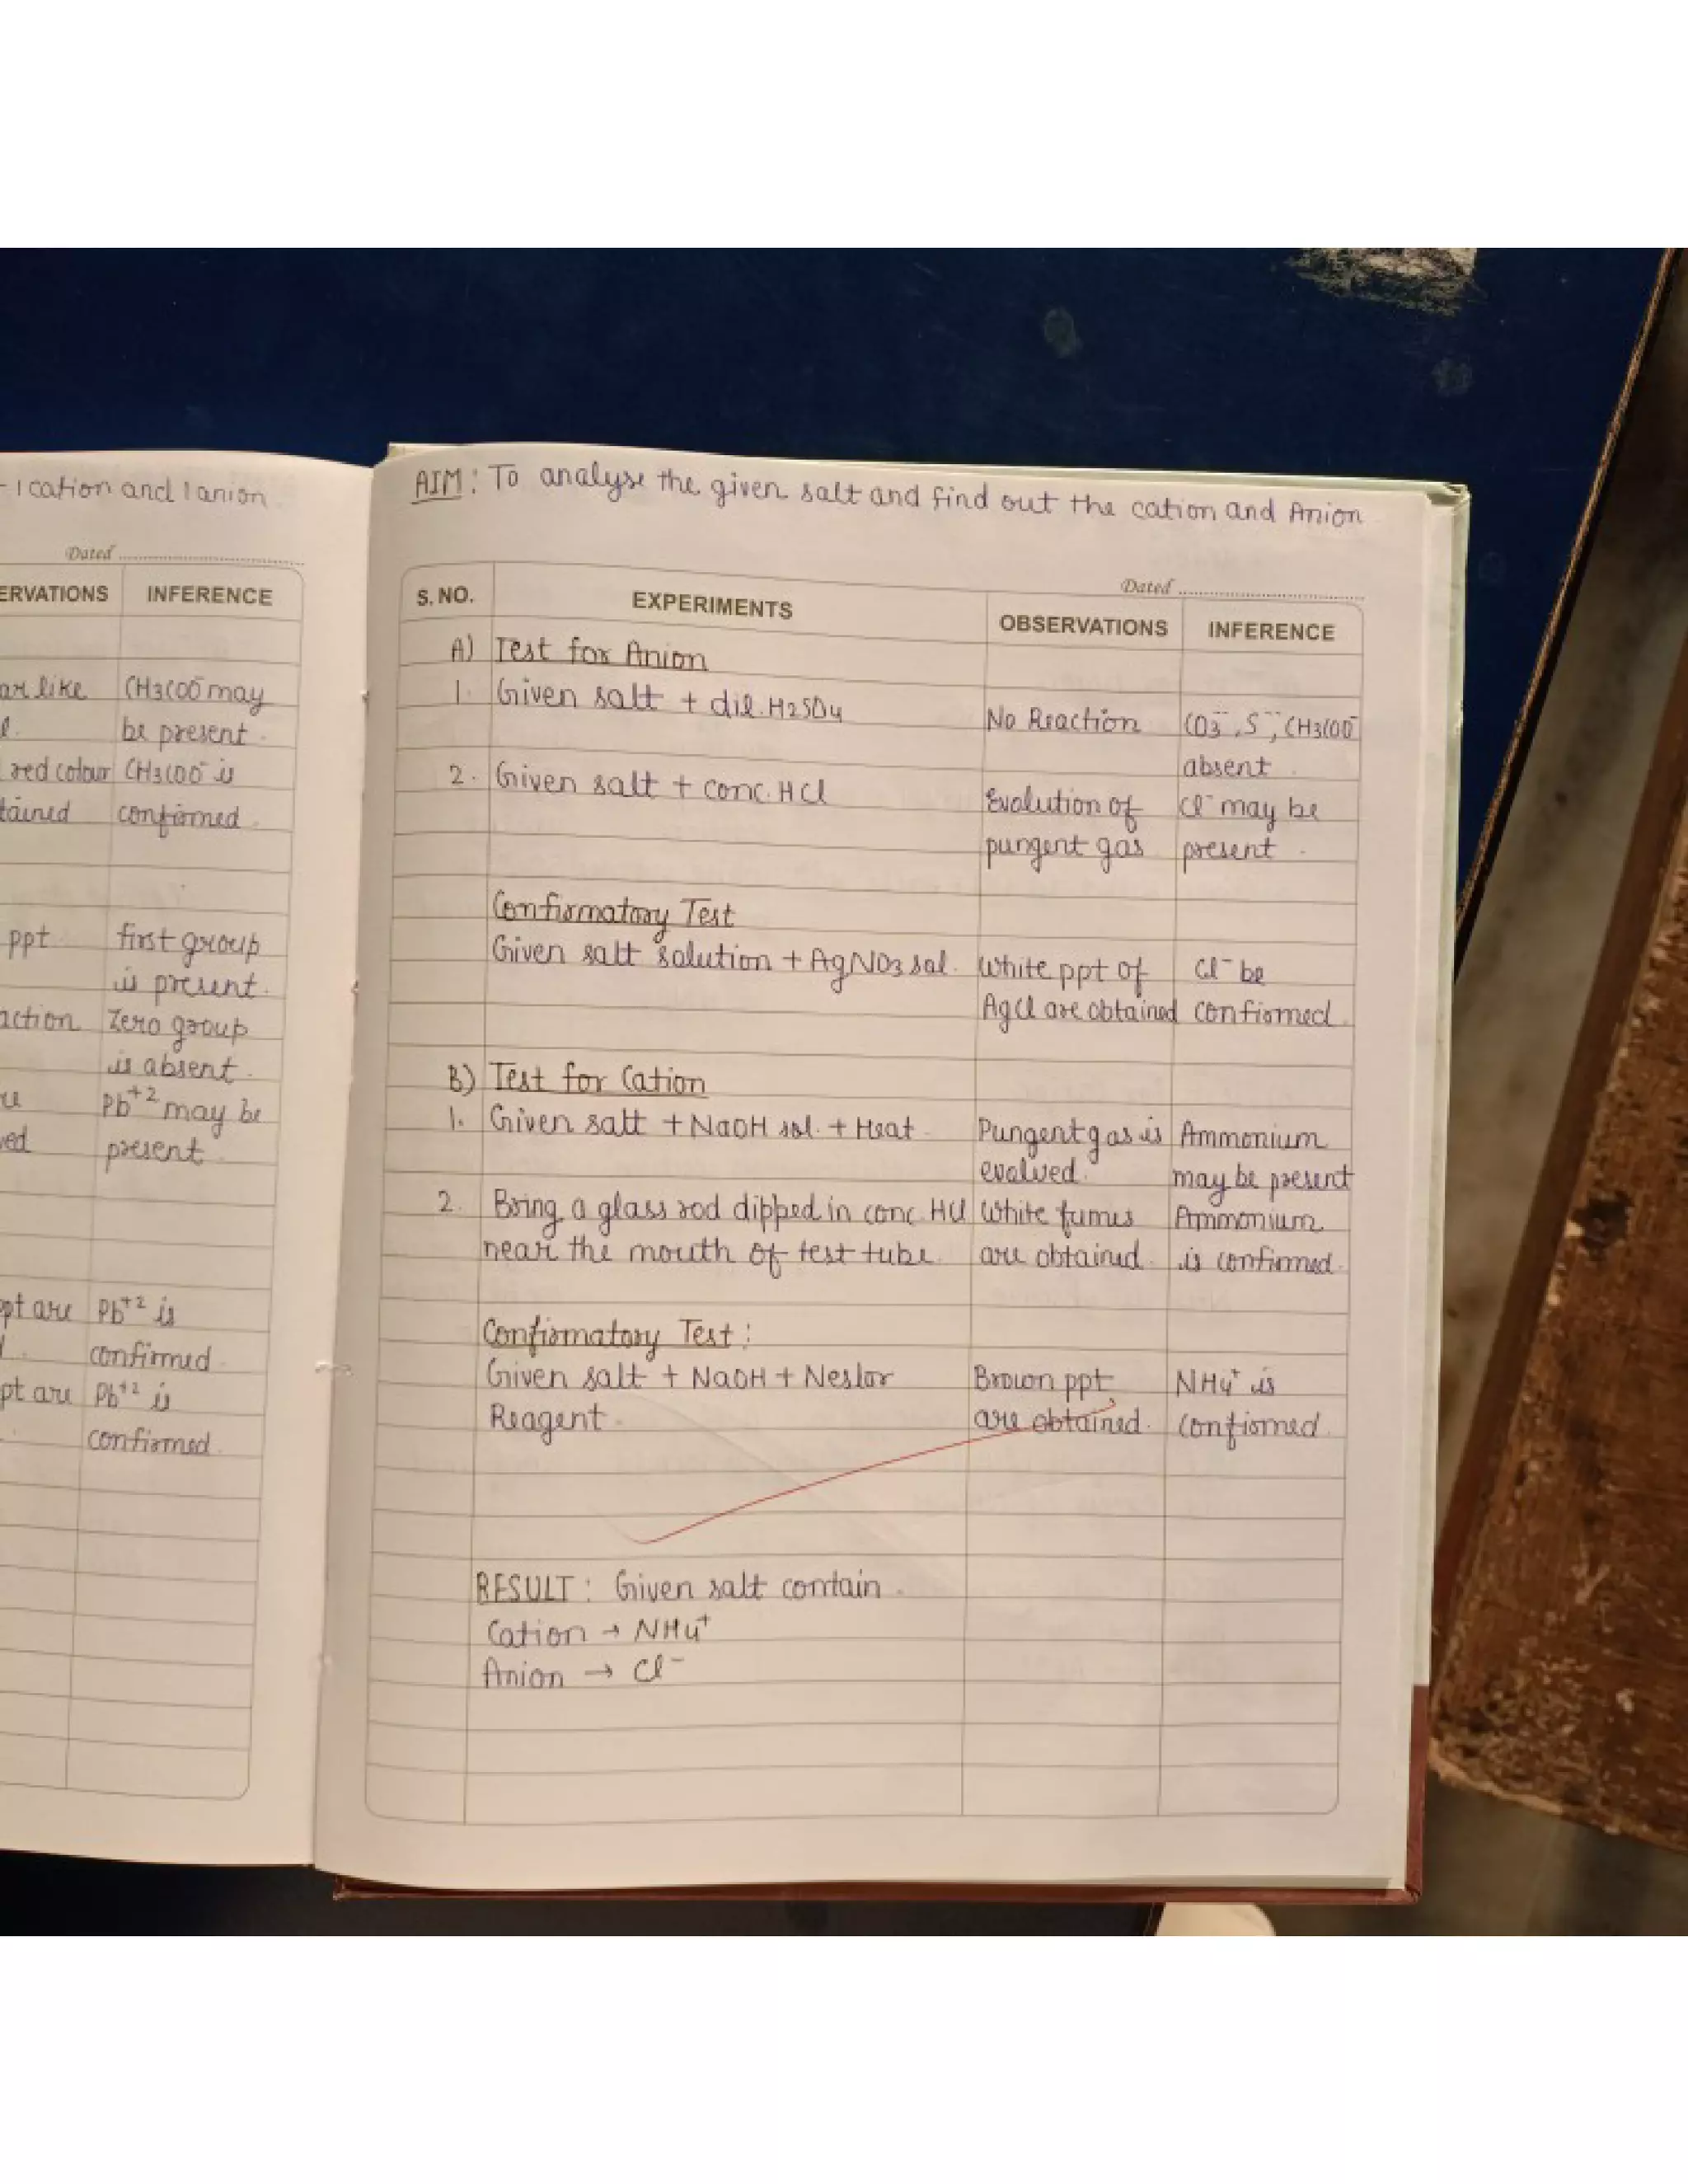 - 1 cation and 1 anion
Dated
ERVATIONS INFERENCE
ar like CH3COO⁻ may
be present.
red colour CH3COO⁻ is
tained confirmed.
ppt first group
is present.
action Zero group
is absent.
Pb+2 may be
ved present.
ppt are Pb+2 is
confirmed.
pt are Pb+2 is
confirmed.
AIM : To analyse the given salt and find out the cation and Anion
Dated
S. NO. EXPERIMENTS OBSERVATIONS INFERENCE
A) Test for Anion
1. Given salt + dil. H2SO4 No Reaction CO3⁻⁻, S⁻⁻, CH3COO⁻
absent.
2. Given salt + conc. HCl Evolution of Cl⁻ may be
pungent gas present.
Confirmatory Test
Given salt solution + AgNO3 sol. White ppt of Cl⁻ be
AgCl are obtained confirmed.
B) Test for Cation
1. Given salt + NaOH sol. + Heat Pungent gas is Ammonium
evolved. may be present
2. Bring a glass rod dipped in conc. HCl White fumes Ammonium
near the mouth of test tube. are obtained. is confirmed.
Confirmatory Test :
Given salt + NaOH + Neslor Brown ppt NH4⁺ is
Reagent. are obtained. confirmed.
RESULT : Given salt contain.
Cation → NH4⁺
Anion → Cl⁻